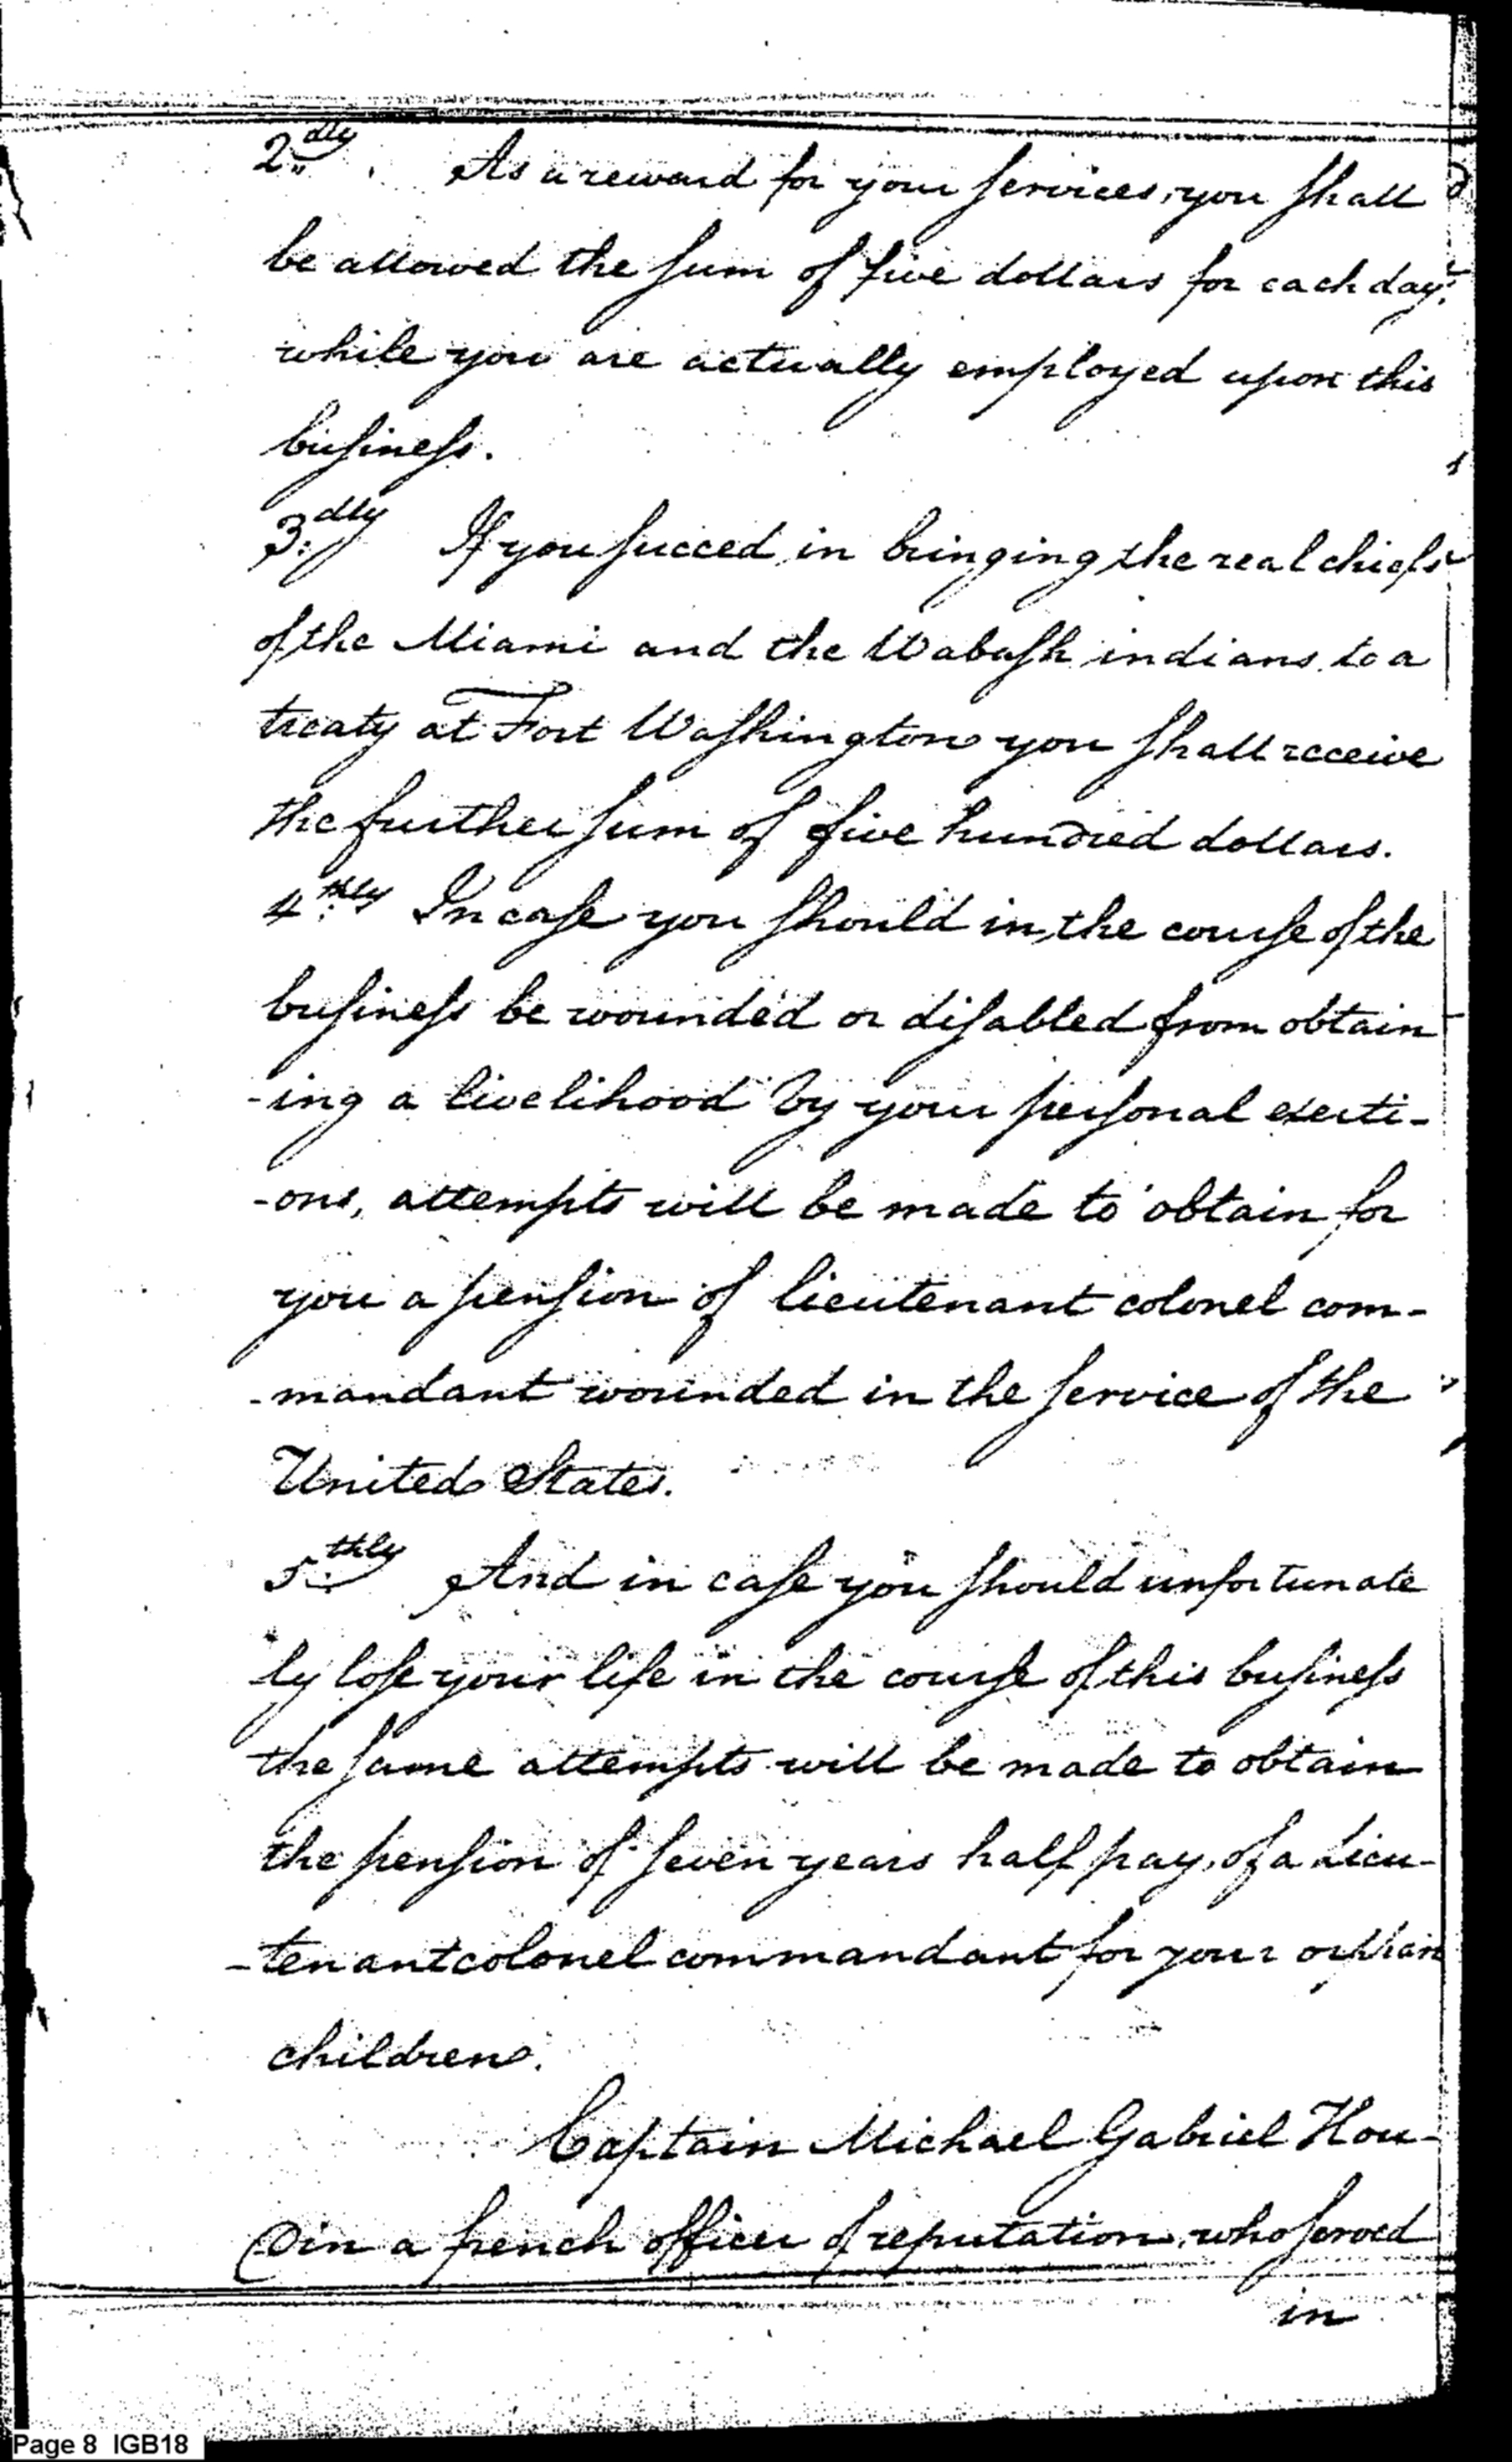 2.dly As a reward for your services, you shall
be allowed the sum of five dollars for each day,
while you are actually employed upon this
business.
3.dly If you succeed in bringing the real chiefs
of the Miami and the Wabash indians to a
treaty at Fort Washington you shall receive
the further sum of five hundred dollars.
4.thly In case you should in, the course of the
business be wounded or disabled from obtain
-ing a livelihood by your personal exerti-
-ons, attempts will be made to obtain for
you a pension of lieutenant colonel com-
-mandant wounded in the service of the
United States.
5.thly And in case you should unfortunate
ly lose your life in the course of this business
the same attempts will be made to obtain
the pension of seven years half pay, of a Lieu-
-tenant colonel commandant for your orphan
children.
Captain Michael Gabriel Hou-
din a french officer of reputation, who served
in
Page 8 IGB18